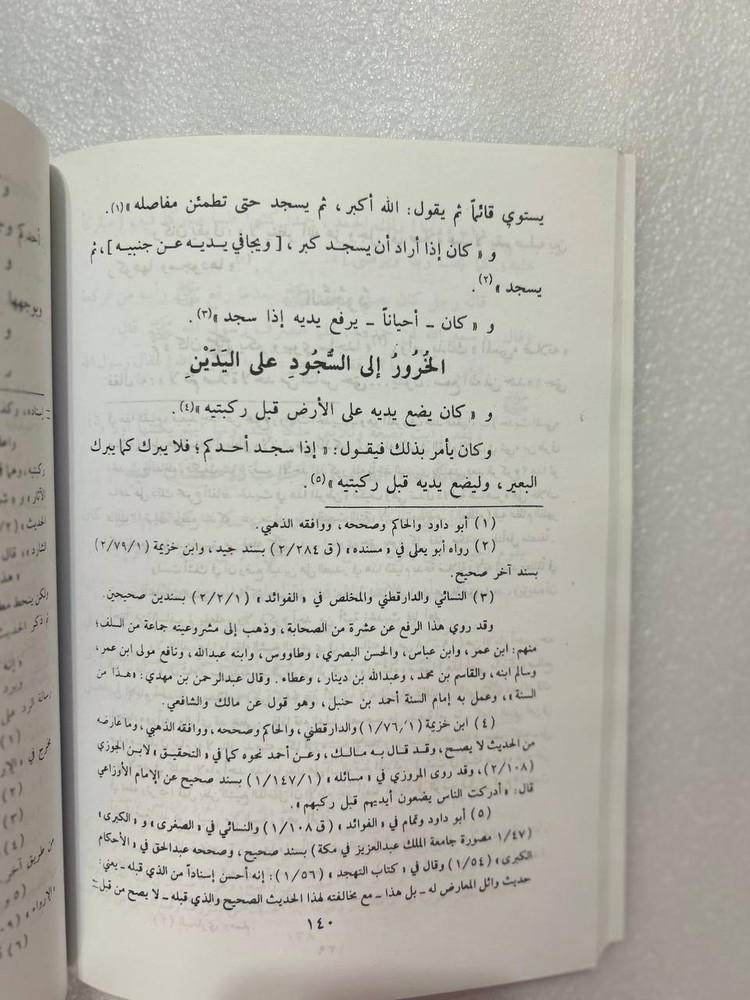 يستوي قائماً ثم يقول: الله أكبر، ثم يسجد حتى تطمئن مفاصله»(١).
و « كان إذا أراد أن يسجد كبر ، [ ويجافي يديه عن جنبيه ] ، ثم
يسجد »(٢).
و « كان ـ أحياناً ـ يرفع يديه إذا سجد »(٣).
الخُرُورُ إلى السُّجُودِ على اليَدَيْنِ
و « كان يضع يديه على الأرض قبل ركبتيه »(٤).
وكان يأمر بذلك فيقول: « إذا سجد أحدكم؛ فلا يبرك كما يبرك
البعير، وليضع يديه قبل ركبتيه»(٥).
(١) أبو داود والحاكم وصححه، ووافقه الذهبي.
(٢) رواه أبو يعلى في « مسنده » (ق ٢/٢٨٤) بسند جيد، وابن خزيمة (٢/٧٩/١)
بسند آخر صحيح.
(٣) النسائي والدارقطني والمخلص في « الفوائد » (٢/٢/١) بسندين صحيحين.
وقد روي هذا الرفع عن عشرة من الصحابة، وذهب إلى مشروعيته جماعة من السلف؛
منهم: ابن عمر، وابن عباس، والحسن البصري، وطاووس، وابنه عبدالله، ونافع مولى ابن عمر،
وسالم ابنه، والقاسم بن محمد، وعبدالله بن دينار، وعطاء. وقال عبدالرحمن بن مهدي: «هذا من
السنة»، وعمل به إمام السنة أحمد بن حنبل، وهو قول عن مالك والشافعي.
(٤) ابن خزيمة (١/٧٦/١) والدارقطني، والحاكم وصححه، ووافقه الذهبي، وما عارضه
من الحديث لا يصح، وقد قال به مالك، وعن أحمد نحوه كما في « التحقيق » لابن الجوزي
(٢/١٠٨)، وقد روى المروزي في « مسائله » (١/١٤٧/١) بسند صحيح عن الإمام الأوزاعي
قال: «أدركت الناس يضعون أيديهم قبل ركبهم».
(٥) أبو داود وتمام في « الفوائد » (ق ١/١٠٨) والنسائي في « الصغرى » و « الكبرى »
(١/٤٧ مصورة جامعة الملك عبدالعزيز في مكة) بسند صحيح، وصححه عبدالحق في « الأحكام
الكبرى » (١/٥٤) وقال في « كتاب التهجد » (١/٥٦): إنه أحسن إسناداً من الذي قبله ـ يعني:
حديث وائل المعارض له ـ بل هذا ـ مع مخالفته لهذا الحديث الصحيح والذي قبله ـ لا يصح من قبل =
١٤٠